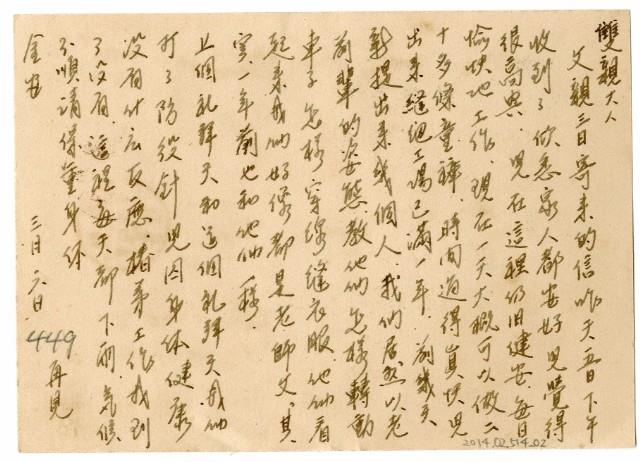 雙親大人
父親三日寄來的信昨天五日下午
收到了欣悉家人都安好兒覺得
很高興．兒在這裡仍旧健安每日
愉快地工作．現在一天大概可以做二
十多條童褲．時間過得真快兒
出來縫紉工場已滿一年．前幾天
新提出來幾個人．我們居然以老
前輩的姿態教他们怎樣轉動
車子怎樣穿線縫衣服他们看
起來我们好像都是老師父．其
實一年前也和他们一樣．
上個礼拜天和這個礼拜天我们
打了防疫針兒因身体健康
沒有什庅反應．椿弟工作找到
了沒有．這裡每天都下雨．気候
不順請保重身体
金安
三月六日
449
再見
2014.02.514.02